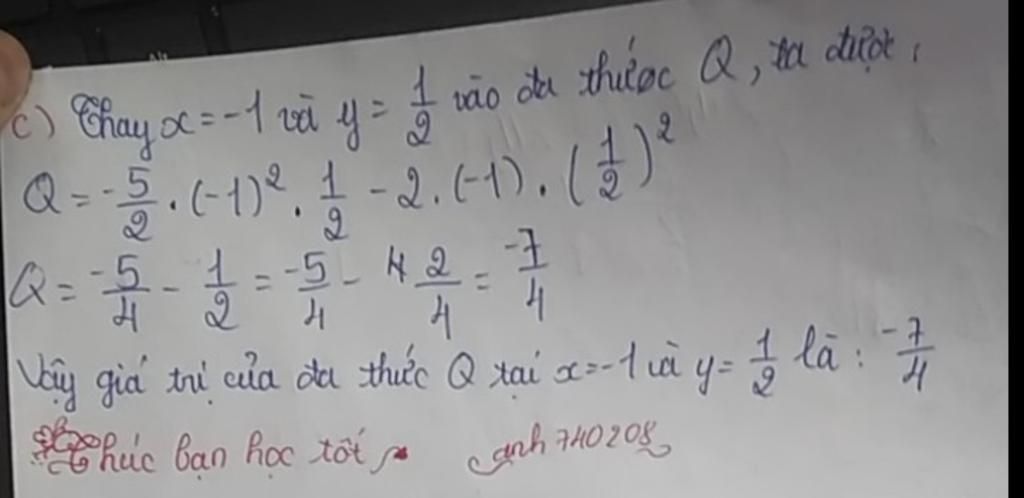 c) Thay x = -1 và y = 1/2 vào đa thức Q, ta được:
Q = -5/2 . (-1)² . 1/2 - 2 . (-1) . (1/2)²
Q = -5/4 - 1/2 = -5/4 - 2/4 = -7/4
Vậy giá trị của đa thức Q tại x = -1 và y = 1/2 là : -7/4
Chúc bạn học tốt ~ anh740208